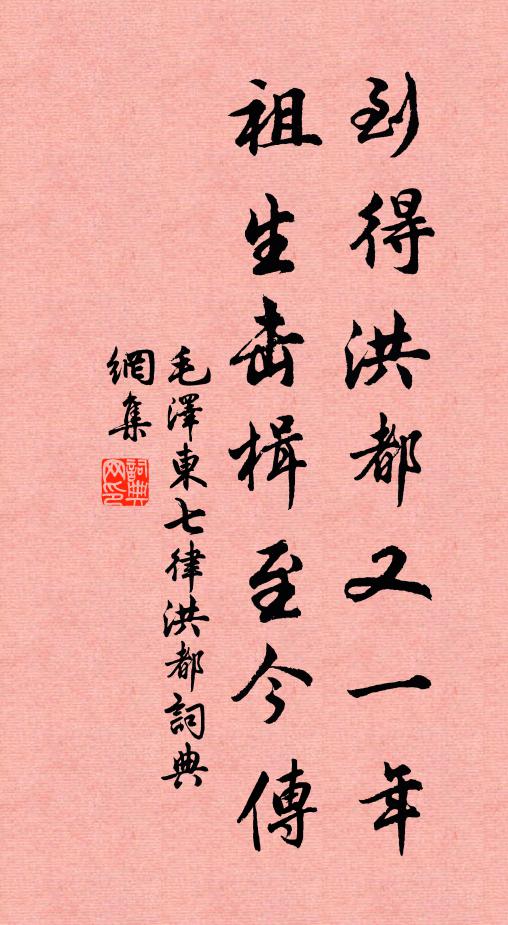 到得洪都又一年
祖生击楫至今傳
毛澤東七律洪都詞典
網集
詞典网印